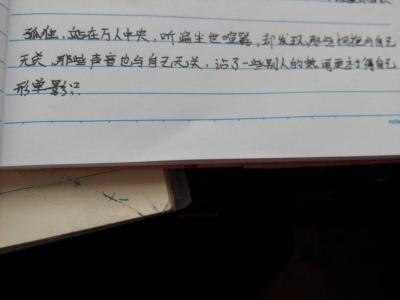 孤独，站在万人中央，听遍尘世喧嚣，却发现那些拥抱与自己
无关，那些声音也与自己无关，沾了一些别人的热闹更衬得自己
形单影只